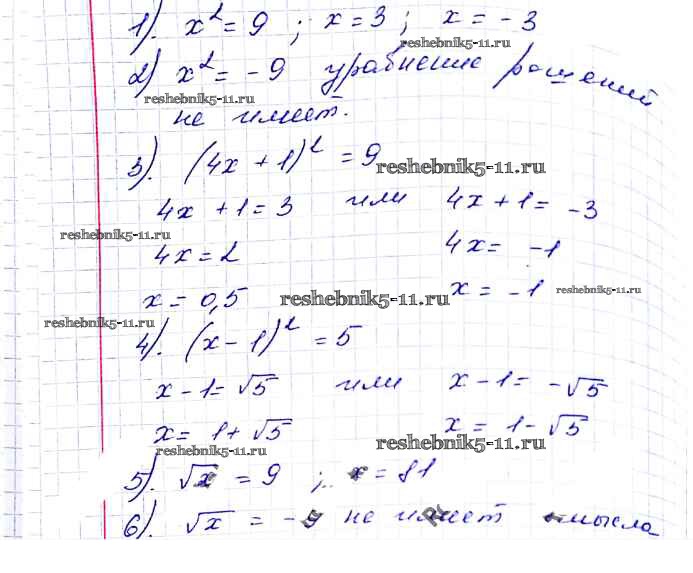 1). x² = 9 ; x = 3 ; x = - 3
reshebnik5-11.ru
2) x² = - 9 уравнение решений
reshebnik5-11.ru
не имеет.
3). (4x + 1)² = 9
reshebnik5-11.ru
4x + 1 = 3 или 4x + 1 = -3
reshebnik5-11.ru
4x = 2 4x = -1
x = 0,5 x = -1
reshebnik5-11.ru reshebnik5-11.ru
reshebnik5-11.ru
4). (x - 1)² = 5
x - 1 = √5 или x - 1 = -√5
x = 1 + √5 x = 1 - √5
reshebnik5-11.ru reshebnik5-11.ru
5). √x = 9 ; x = 81
6). √x = - 9 не имеет смысла